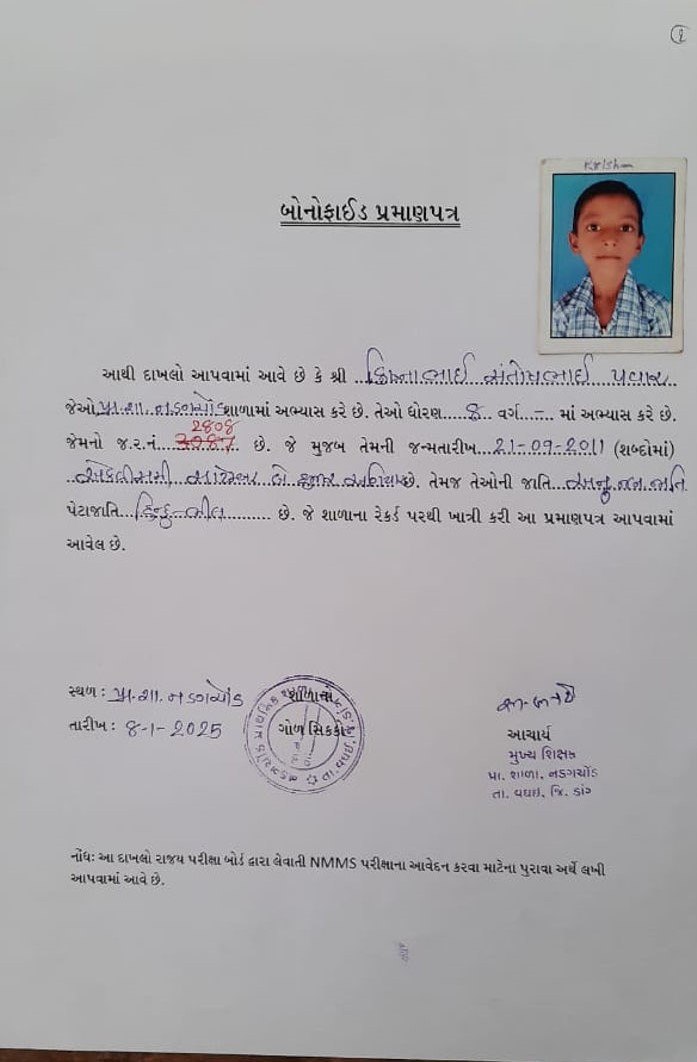 ૧
Krishna
બોનોફાઈડ પ્રમાણપત્ર
આથી દાખલો આપવામાં આવે છે કે શ્રી ક્રિષ્નાભાઈ સંતોષભાઈ પવાર
જેઓ પ્રા.શા. નડગચોંડ શાળામાં અભ્યાસ કરે છે. તેઓ ધોરણ 8 વર્ગ - માં અભ્યાસ કરે છે.
2808
જેમનો જ.ર.નં. છે. જે મુજબ તેમની જન્મતારીખ 21-09-2011 (શબ્દોમાં)
એકવીસમી સપ્ટેમ્બર બે હજાર અગિયાર છે. તેમજ તેઓની જાતિ અનુ.જન.જાતિ
પેટાજાતિ હિન્દુ-ભીલ છે. જે શાળાના રેકર્ડ પરથી ખાત્રી કરી આ પ્રમાણપત્ર આપવામાં
આવેલ છે.
સ્થળ : પ્રા.શા. નડગચોંડ
તારીખ : 8-1-2025
શાળાનો
ગોળ સિક્કો
આચાર્ય
મુખ્ય શિક્ષક
પ્રા. શાળા. નડગચોંડ
તા. વઘઇ. જિ. ડાંગ
નોંધઃ આ દાખલો રાજય પરીક્ષા બોર્ડ દ્વારા લેવાતી NMMS પરીક્ષાના આવેદન કરવા માટેના પુરાવા અર્થે લખી
આપવામાં આવે છે.